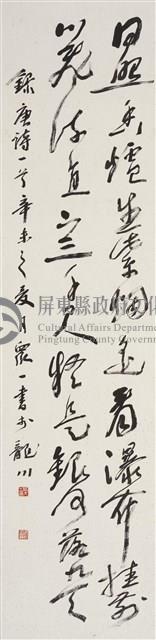 日照香爐生紫烟遙看瀑布挂前
川飛流直下三千尺疑是銀河落九天
錄唐詩一首辛未之夏月眾一書於龍川
屏東縣政府文化
Cultural Affairs Department
Pingtung County Government